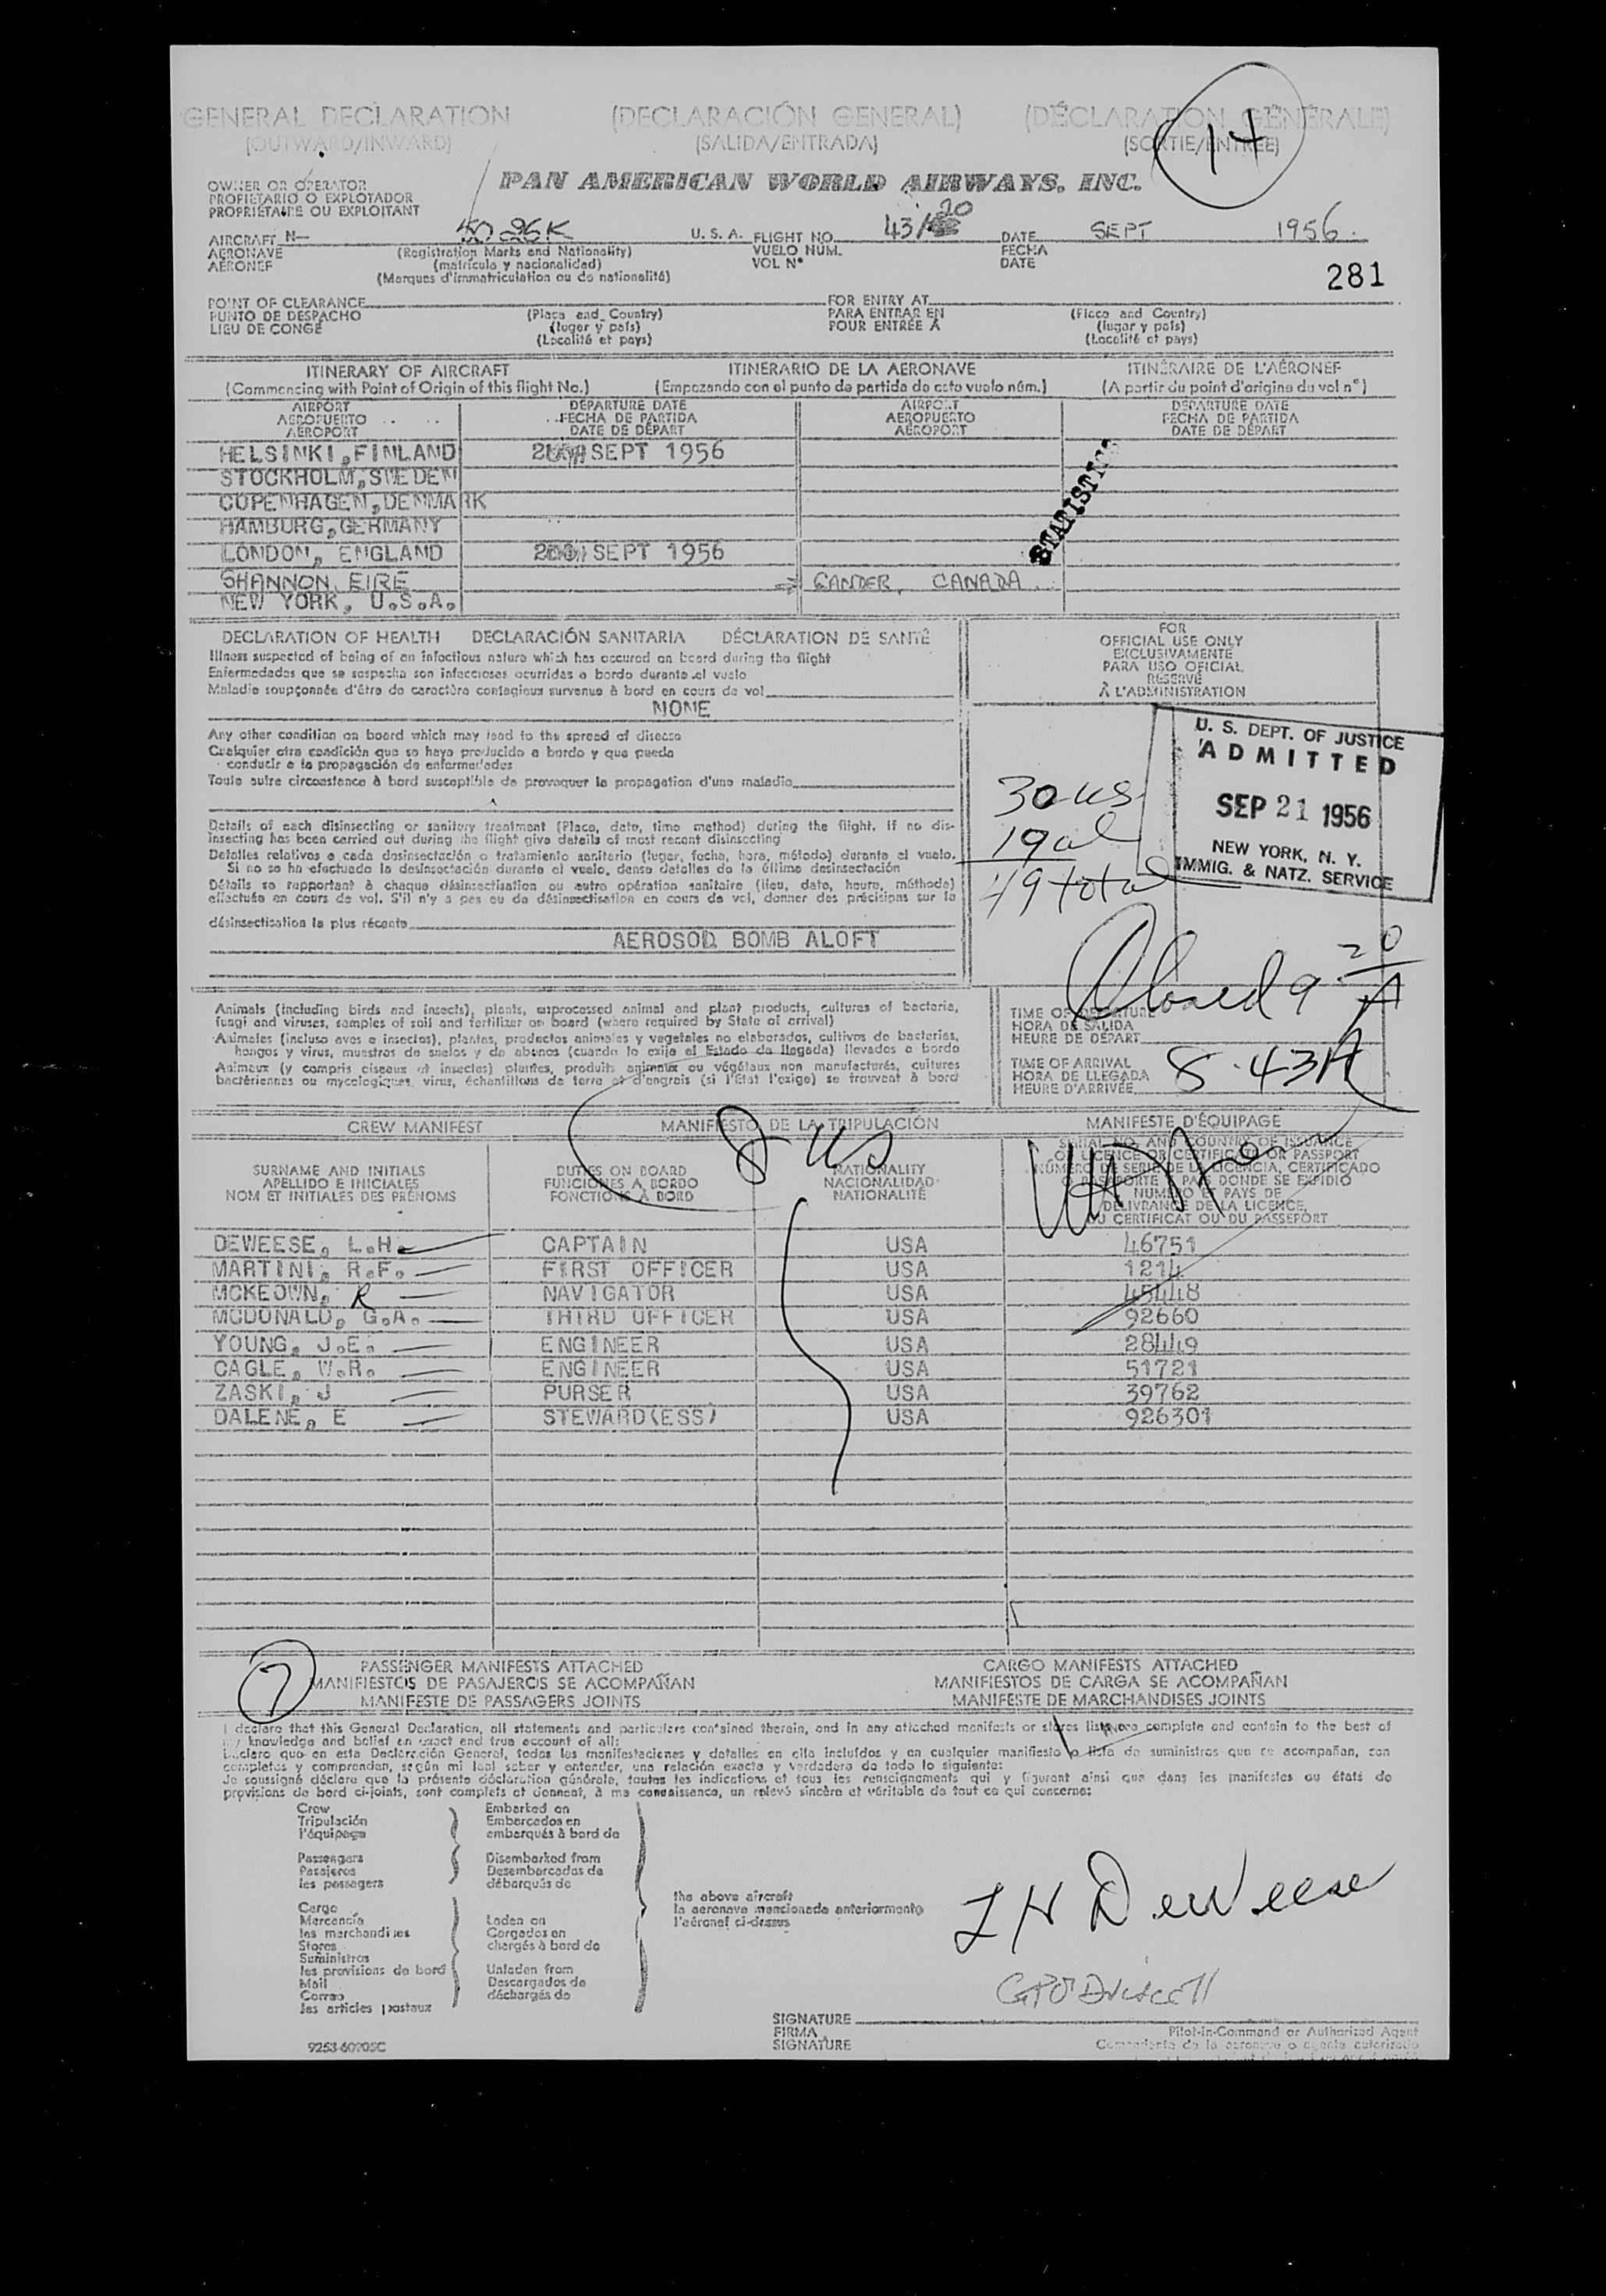 GENERAL DECLARATION (DECLARACIÓN GENERAL) (DÉCLARATION GÉNÉRALE)
(OUTWARD/INWARD) (SALIDA/ENTRADA) (SORTIE/ENTRÉE)
14
OWNER OR OPERATOR
PROPIETARIO O EXPLOTADOR
PROPRIÉTAIRE OU EXPLOITANT
PAN AMERICAN WORLD AIRWAYS, INC.
AIRCRAFT N— 26K U. S. A. FLIGHT NO. 43/20 DATE SEPT 1956.
AERONAVE (Registration Marks and Nationality) VUELO NÚM. FECHA
AÉRONEF (matrícula y nacionalidad) VOL Nº DATE
(Marques d'immatriculation ou de nationalité)
281
POINT OF CLEARANCE FOR ENTRY AT
PUNTO DE DESPACHO (Place and Country) PARA ENTRAR EN (Place and Country)
LIEU DE CONGÉ (lugar y país) POUR ENTRÉE À (lugar y país)
(Localité et pays) (Localité et pays)
ITINERARY OF AIRCRAFT ITINERARIO DE LA AERONAVE ITINÉRAIRE DE L'AÉRONEF
(Commencing with Point of Origin of this flight No.) (Empezando con el punto de partida de este vuelo núm.) (A partir du point d'origine du vol nº)
AIRPORT DEPARTURE DATE AIRPORT DEPARTURE DATE
AEROPUERTO FECHA DE PARTIDA AEROPUERTO FECHA DE PARTIDA
AÉROPORT DATE DE DÉPART AÉROPORT DATE DE DÉPART
HELSINKI, FINLAND SEPT 1956
STOCKHOLM, SWEDEN
COPENHAGEN, DENMARK
HAMBURG, GERMANY
LONDON, ENGLAND SEPT 1956
SHANNON, EIRE GANDER, CANADA
NEW YORK, U.S.A.
DECLARATION OF HEALTH DECLARACIÓN SANITARIA DÉCLARATION DE SANTÉ
Illness suspected of being of an infectious nature which has occured on board during the flight
Enfermedades que se sospecha son infecciosas ocurridas a bordo durante el vuelo
Maladie soupçonnée d'être de caractère contagieux survenue à bord en cours de vol
NONE
Any other condition on board which may lead to the spread of disease
Cualquier otra condición que se haya producido a bordo y que pueda
conducir a la propagación de enfermedades
Toute autre circonstance à bord susceptible de provoquer la propagation d'une maladie
Details of each disinsecting or sanitary treatment (Place, date, time method) during the flight. If no dis-
insecting has been carried out during the flight give details of most recent disinsecting
Detalles relativos a cada desinsectación o tratamiento sanitario (lugar, fecha, hora, método) durante el vuelo.
Si no se ha efectuado la desinsectación durante el vuelo, dense detalles de la última desinsectación
Détails se rapportant à chaque désinsectisation ou autre opération sanitaire (lieu, date, heure, méthode)
effectuée en cours de vol. S'il n'y a pas eu de désinsectisation en cours de vol, donner des précisions sur la
désinsectisation la plus récente
AEROSOL BOMB ALOFT
FOR
OFFICIAL USE ONLY
EXCLUSIVAMENTE
PARA USO OFICIAL
RESERVÉ
À L'ADMINISTRATION
U. S. DEPT. OF JUSTICE
ADMITTED
SEP 21 1956
NEW YORK, N. Y.
IMMIG. & NATZ. SERVICE
30 us
19 al
49 total
Closed 9 20/A
Animals (including birds and insects), plants, unprocessed animal and plant products, cultures of bacteria,
fungi and viruses, samples of soil and fertilizer on board (where required by State of arrival)
Animales (incluso aves e insectos), plantas, productos animales y vegetales no elaborados, cultivos de bacterias,
hongos y virus, muestras de suelos y de abonos (cuando lo exija el Estado de llegada) llevados a bordo
Animaux (y compris oiseaux et insectes) plantes, produits animaux ou végétaux non manufacturés, cultures
bactériennes ou mycologiques, virus, échantillons de terre et d'engrais (si l'État l'exige) se trouvant à bord
TIME OF DEPARTURE
HORA DE SALIDA
HEURE DE DÉPART
TIME OF ARRIVAL
HORA DE LLEGADA 8.43A
HEURE D'ARRIVÉE
CREW MANIFEST MANIFIESTO DE LA TRIPULACIÓN MANIFESTE D'ÉQUIPAGE
8 us
SURNAME AND INITIALS
APELLIDO E INICIALES
NOM ET INITIALES DES PRÉNOMS
DUTIES ON BOARD
FUNCIONES A BORDO
FONCTIONS À BORD
NATIONALITY
NACIONALIDAD
NATIONALITÉ
SERIAL NO. AND COUNTRY OF ISSUANCE
OF LICENCE OR CERTIFICATE OR PASSPORT
NÚMERO DE SERIE DE LA LICENCIA, CERTIFICADO
O PASAPORTE Y PAÍS DONDE SE EXPIDIÓ
NUMÉRO ET PAYS DE
DÉLIVRANCE DE LA LICENCE,
DU CERTIFICAT OU DU PASSEPORT
DEWEESE, L.H. CAPTAIN USA 46751
MARTINI, R.F. FIRST OFFICER USA 1214
MCKEOWN, R NAVIGATOR USA 45448
MCDONALD, G.A. THIRD OFFICER USA 92660
YOUNG, J.E. ENGINEER USA 28449
CAGLE, W.R. ENGINEER USA 51721
ZASKI, J PURSER USA 39762
DALENE, E STEWARD(ESS) USA 926301
7
PASSENGER MANIFESTS ATTACHED CARGO MANIFESTS ATTACHED
MANIFIESTOS DE PASAJEROS SE ACOMPAÑAN MANIFIESTOS DE CARGA SE ACOMPAÑAN
MANIFESTE DE PASSAGERS JOINTS MANIFESTE DE MARCHANDISES JOINTS
I declare that this General Declaration, all statements and particulars contained therein, and in any attached manifests or stores lists are complete and contain to the best of
my knowledge and belief an exact and true account of all:
Declaro que en esta Declaración General, todas las manifestaciones y detalles en ella incluídos y en cualquier manifiesto o lista de suministros que se acompañan, son
completos y comprenden, según mi leal saber y entender, una relación exacta y verdadera de todo lo siguiente:
Je soussigné déclare que la présente déclaration générale, toutes les indications et tous les renseignements qui y figurent ainsi que dans les manifestes ou états de
provisions de bord ci-joints, sont complets et donnent, à ma connaissance, un relevé sincère et véritable de tout ce qui concerne:
Crew Embarked on
Tripulación Embarcados en
l'équipage embarqués à bord de
Passengers Disembarked from
Pasajeros Desembarcados de
les passagers débarqués de
the above aircraft
la aeronave mencionada anteriormente
l'aéronef ci-dessus
Cargo
Mercancía Laden on
les marchandises Cargados en
Stores chargés à bord de
Suministros
les provisions de bord Unladen from
Mail Descargados de
Correo déchargés de
les articles postaux
L H DeWeese
SIGNATURE
FIRMA
SIGNATURE
Pilot-in-Command or Authorized Agent
Comandante de la aeronave o agente autorizado
9253-60905C